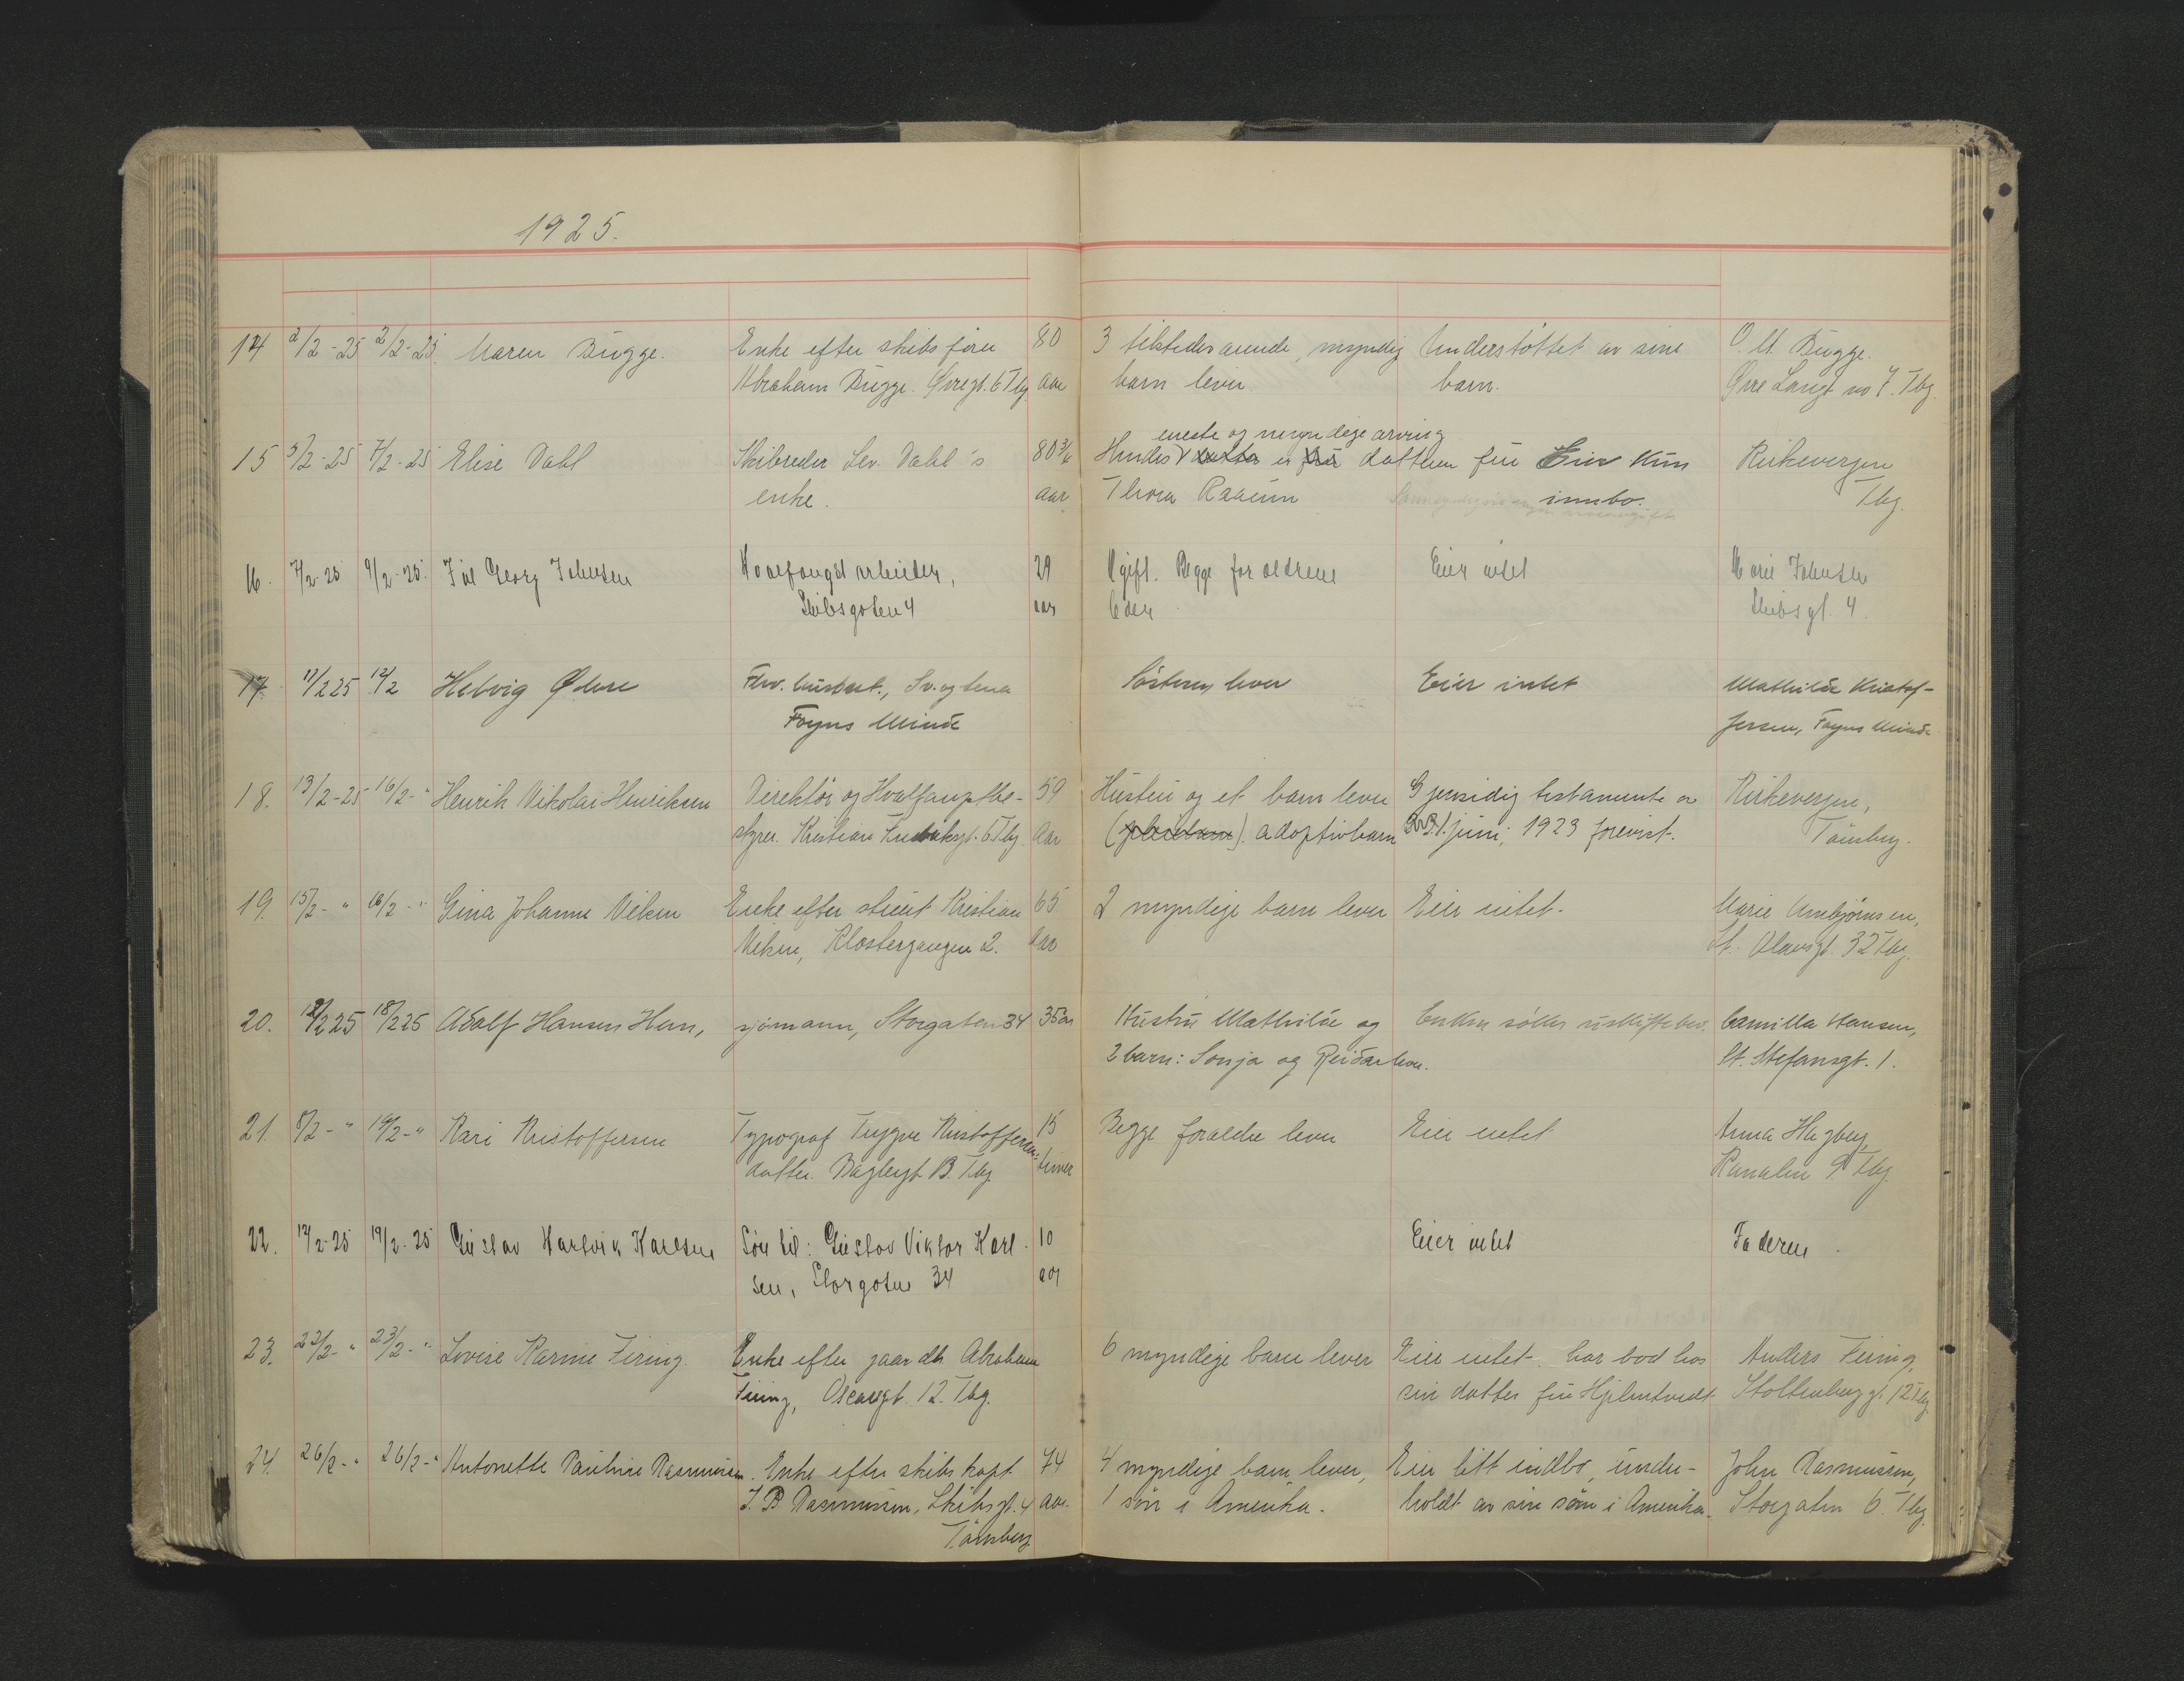 1925.
14 2/2-25 2/2-25 Maren Bugge. Enke efter skibsfører 80 3 tilstedeværende, myndig Understøttet av sine O. M. Bugge.
Abraham Bugge. Øvregt. 6 Tbg. aar barn lever. barn. Øvre Langt no 7. Tbg.
eneste og myndige arving
15 5/2-25 7/2-25 Elise Dahl Skibsreder Lev. Dahl's 80 3/4 Hendes datter er fru datteren fru Eier kun Kirkevergen
enke. aar Thora Raaum innbo. Tbg.
16. 7/2-25 9/2-25. Georg Johnsen Hvalfangstarbeider, 29 Ugift. Begge forældrene Eier intet Marie Johnsen
Skibsgaten 4 aar døde Skibsgt. 4.
17. 11/2 25 12/2 Helvig Fhv. husbest., Sv. og Lena Søsteren lever Eier intet Mathilde Kristof-
Foyns Minde fersen, Foyns Minde
18. 13/2-25 16/2-" Henrik Nikolai Henriksen Direktør og Hvalfangstbe- 59 Hustru og et barn lever Gjensidig testamente av
styrer. Kristian Fredriksgt. 6 Tbg. aar (pleiebarn). adoptivbarn 1. juni, 1923 forevist. Kirkevergen,
Tønsberg.
19. 15/2-" 16/2-" Gina Johanne Veken Enke efter stuert Kristian 65 2 myndige barn lever Eier intet. Marie Arnbjørnsen,
Veken, Klostergangen 2. aar St. Olavsgt. 32 Tbg.
20. 12/2 25 18/2 25 Adolf Hansen Hem, sjømann, Storgaten 34 35 år Hustru Mathilde og Enken søker uskiftebev. Camilla Hansen,
2 barn: Sonja og Reidar lever. St. Stefansgt. 1.
21. 8/2-" 19/2-" Kari Kristoffersen Typograf Trygve Kristoffersens 15 Begge forældre lever Eier intet Anna Hagberg,
datter. Baglergt 13. Tbg. timer Kanalen 9 Tbg.
22. 17/2-25 19/2-25 Gustav Hartvik Karlsen Søn til: Gustav Viktor Karl- 10 Eier intet Faderen.
sen, Storgaten 34 aar
23. 22/2-" 23/2-" Lovise Karine Firing. Enke efter gaardbr. Abraham 6 myndige barn lever Eier intet. har bod hos Anders Firing,
Firing, Oscarsgt. 12. Tbg. sin datter fru Hjelmtvedt Stoltenberggt. 12 Tbg.
24. 26/2-" 26/2-" Antonette Pauline Rasmussen. Enke efter skibskapt. 74 4 myndige barn lever, Eier litt indbo, under- John Rasmussen,
J. B. Rasmussen, Skibsgt. 4 aar. 1 søn i Amerika. holdt av sin sønn i Amerika. Storgaten 6. Tbg.
Tønsberg